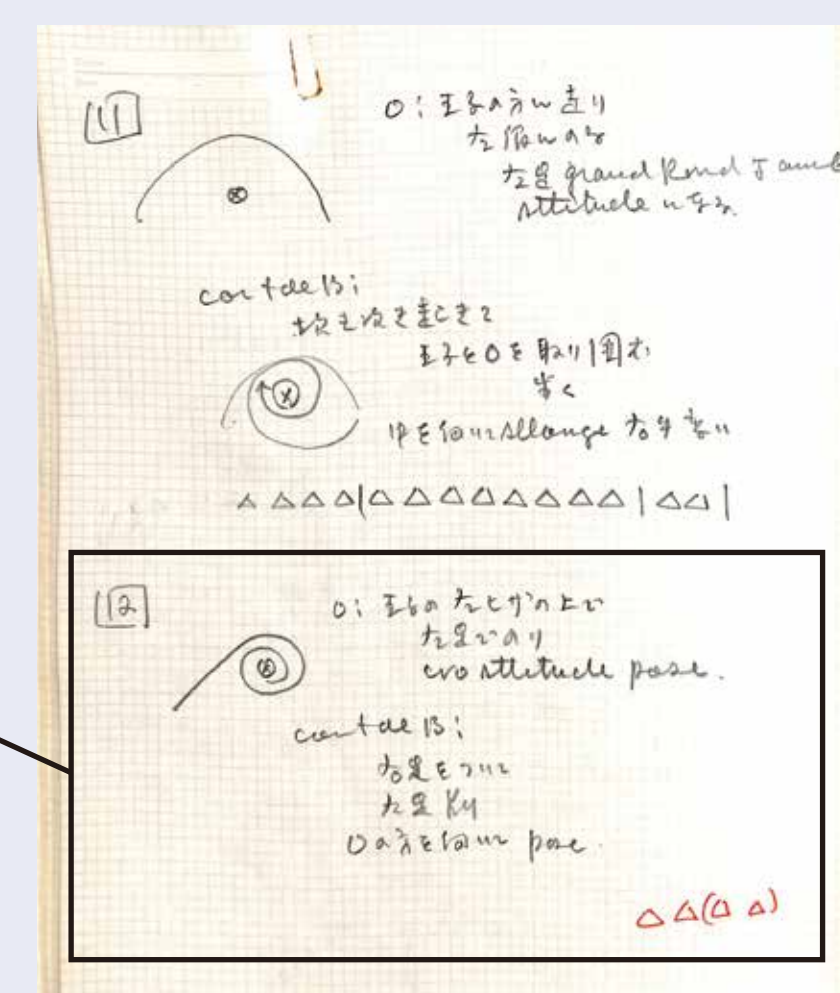 11
O: 王子の方へ走り
左腕へのる
左足 grand Rond J amb
attitude になる
cor de B:
次々起きて
王子とOを取り囲む
歩く
中を向いて allongé 右手高い
△ △ △ △ | △ △ △ △ △ △ △ △ △ | △ △ |
12
O: 王子の左ヒザの上で
左足でのり
cro attitude pose.
cor de B:
右足をついて
左足
Oの方を向いて pose.
△ △ (△ △)